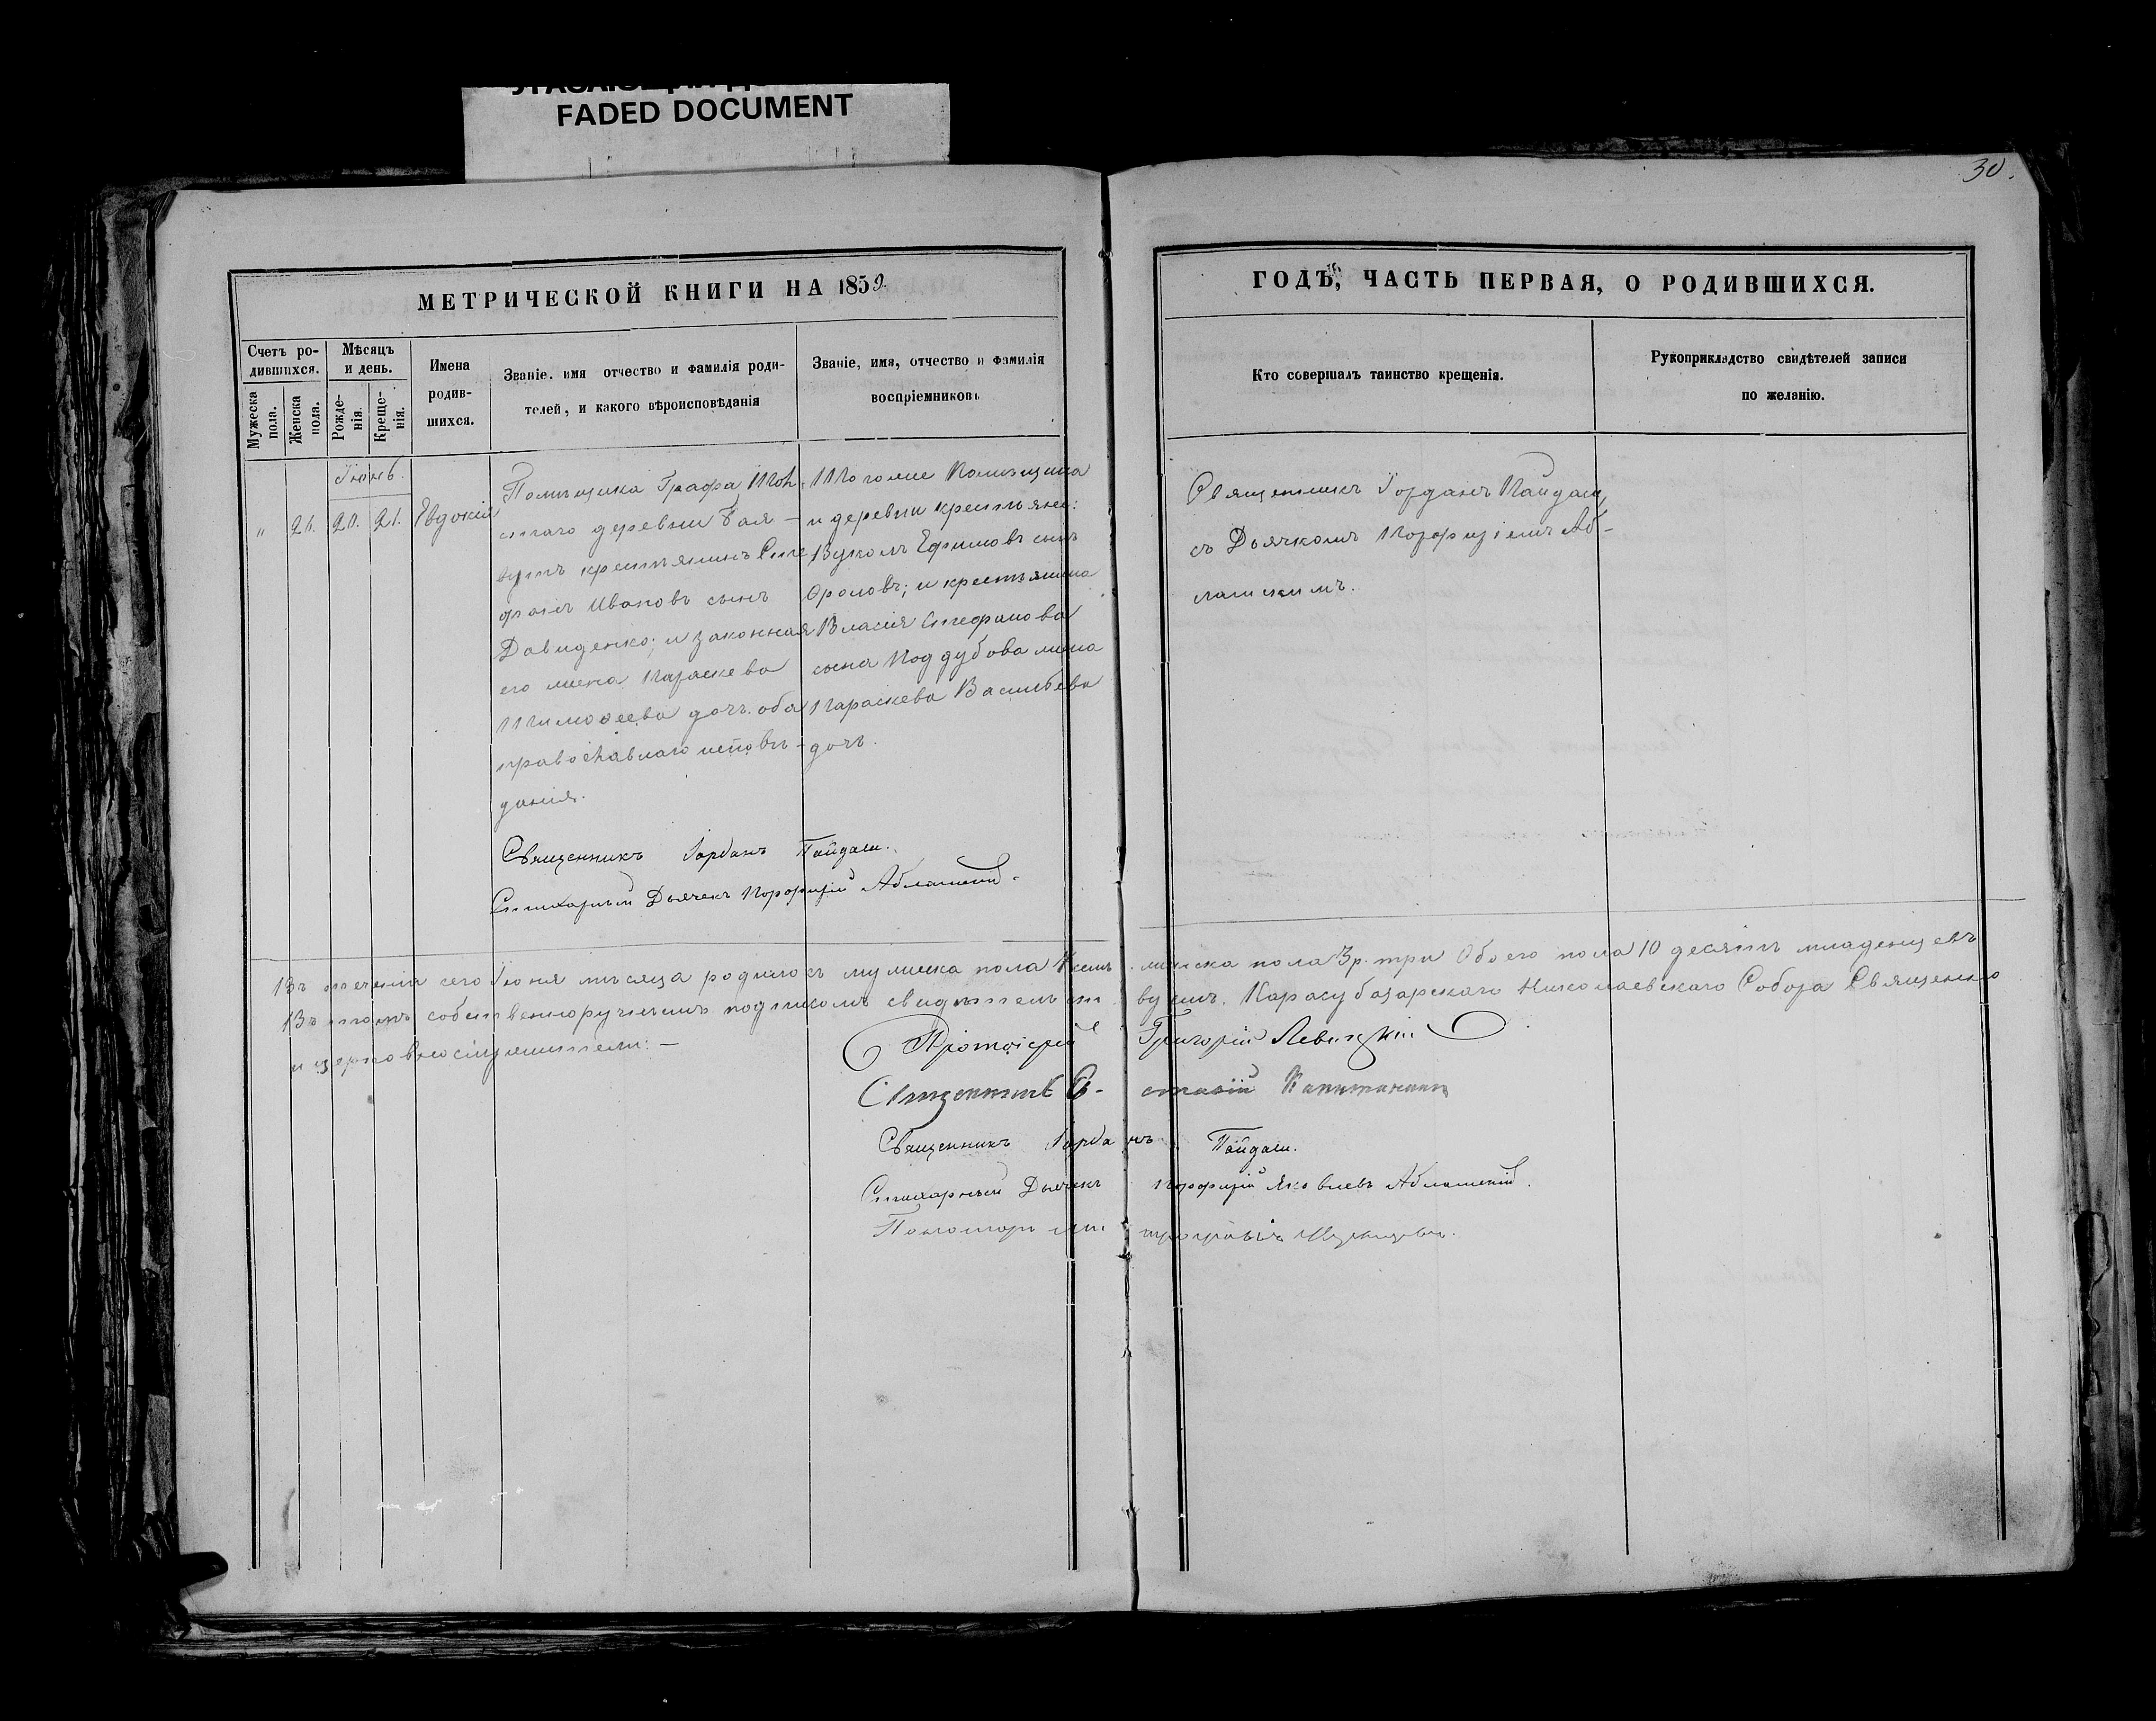 FADED DOCUMENT
30.
МЕТРИЧЕСКОЙ КНИГИ НА 1859
ГОДЪ, ЧАСТЬ ПЕРВАЯ, О РОДИВШИХСЯ.
Счетъ ро-
дившихся.
Мужеска
пола.
Женска
пола.
Мѣсяцъ
и день.
Рожде-
нія.
Креще-
нія.
Имена
родив-
шихся.
Званіе, имя отчество и фамилія роди-
телей, и какого вѣроисповѣданія
Званіе, имя, отчество и фамилія
воспріемниковъ
Кто совершалъ таинство крещенія.
Рукоприкладство свидѣтелей записи
по желанію.
Іюнь.
„ 20. 21. Евдокія
Помѣщика Графа
деревни
крестьянинъ Сте
фанъ Ивановъ сынъ
Давиденко; и законная
его жена Параскева
Тимоѳеева дочь. оба
православнаго исповѣ-
данія.
Тогоже Помѣщика
и деревни крестьяне:
Вуколъ Ефимовъ сынъ
Фроловъ; и крестьянина
Власія Стефанова
сына Поддубова жена
Параскева Васильева
дочь.
Священникъ Іорданъ Пайдаши
съ Дьячкомъ Порфиріемъ Аб-
лажскимъ.
Священникъ Іорданъ Пайдаши.
Стихарный Дьячекъ Порфирій
Въ теченіи сего Іюня мѣсяца родилось мужеска пола 7 семь. женска пола 3 р. три Обоего пола 10 десять младенцевъ
Въ томъ собственноручнымъ подписомъ свидѣтельст вуемъ. Карасубазарскаго Николаевскаго Собора Священно
и церковнослужители: —
Протоіерей Григорій Левицкій
Священникъ
Священникъ Іорданъ Пайдаши.
Стихарный Дьячекъ Порфирій Яковлевъ
Пономарь